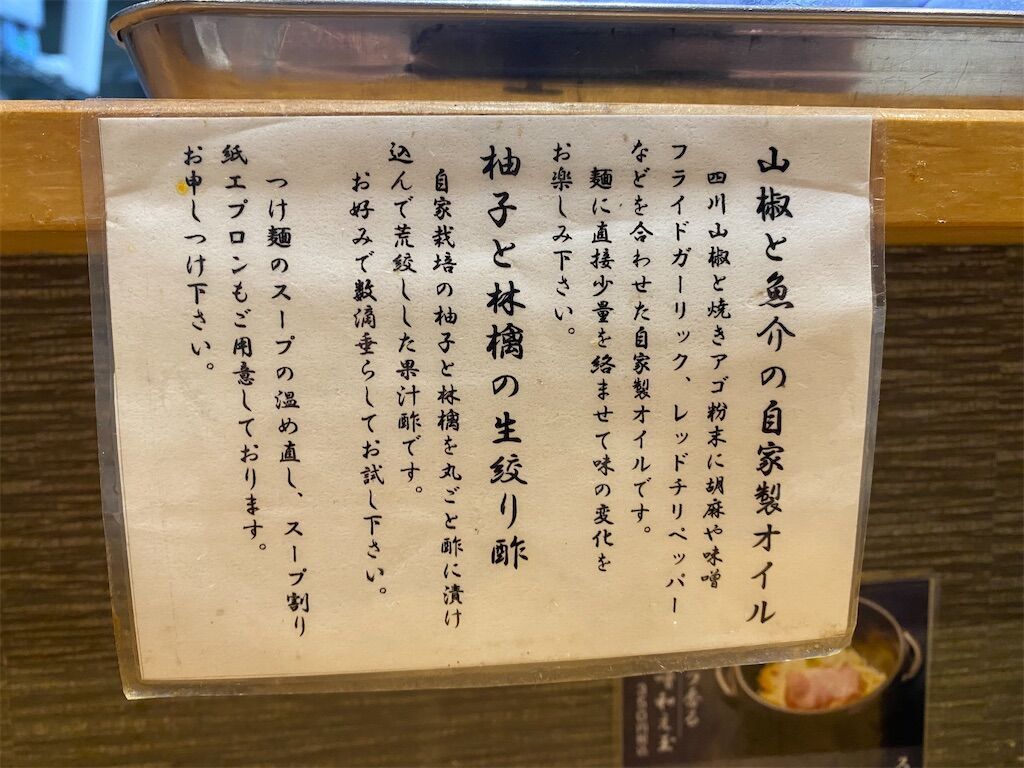 山椒と魚介の自家製オイル
四川山椒と焼きアゴ粉末に胡麻や味噌
フライドガーリック、レッドチリペッパー
などを合わせた自家製オイルです。
麺に直接少量を絡ませて味の変化を
お楽しみ下さい。
柚子と林檎の生絞り酢
自家栽培の柚子と林檎を丸ごと酢に漬け
込んで荒絞しした果汁酢です。
お好みで数滴垂らしてお試し下さい。
つけ麺のスープの温め直し、スープ割り
紙エプロンもご用意しております。
お申しつけ下さい。
味和え玉